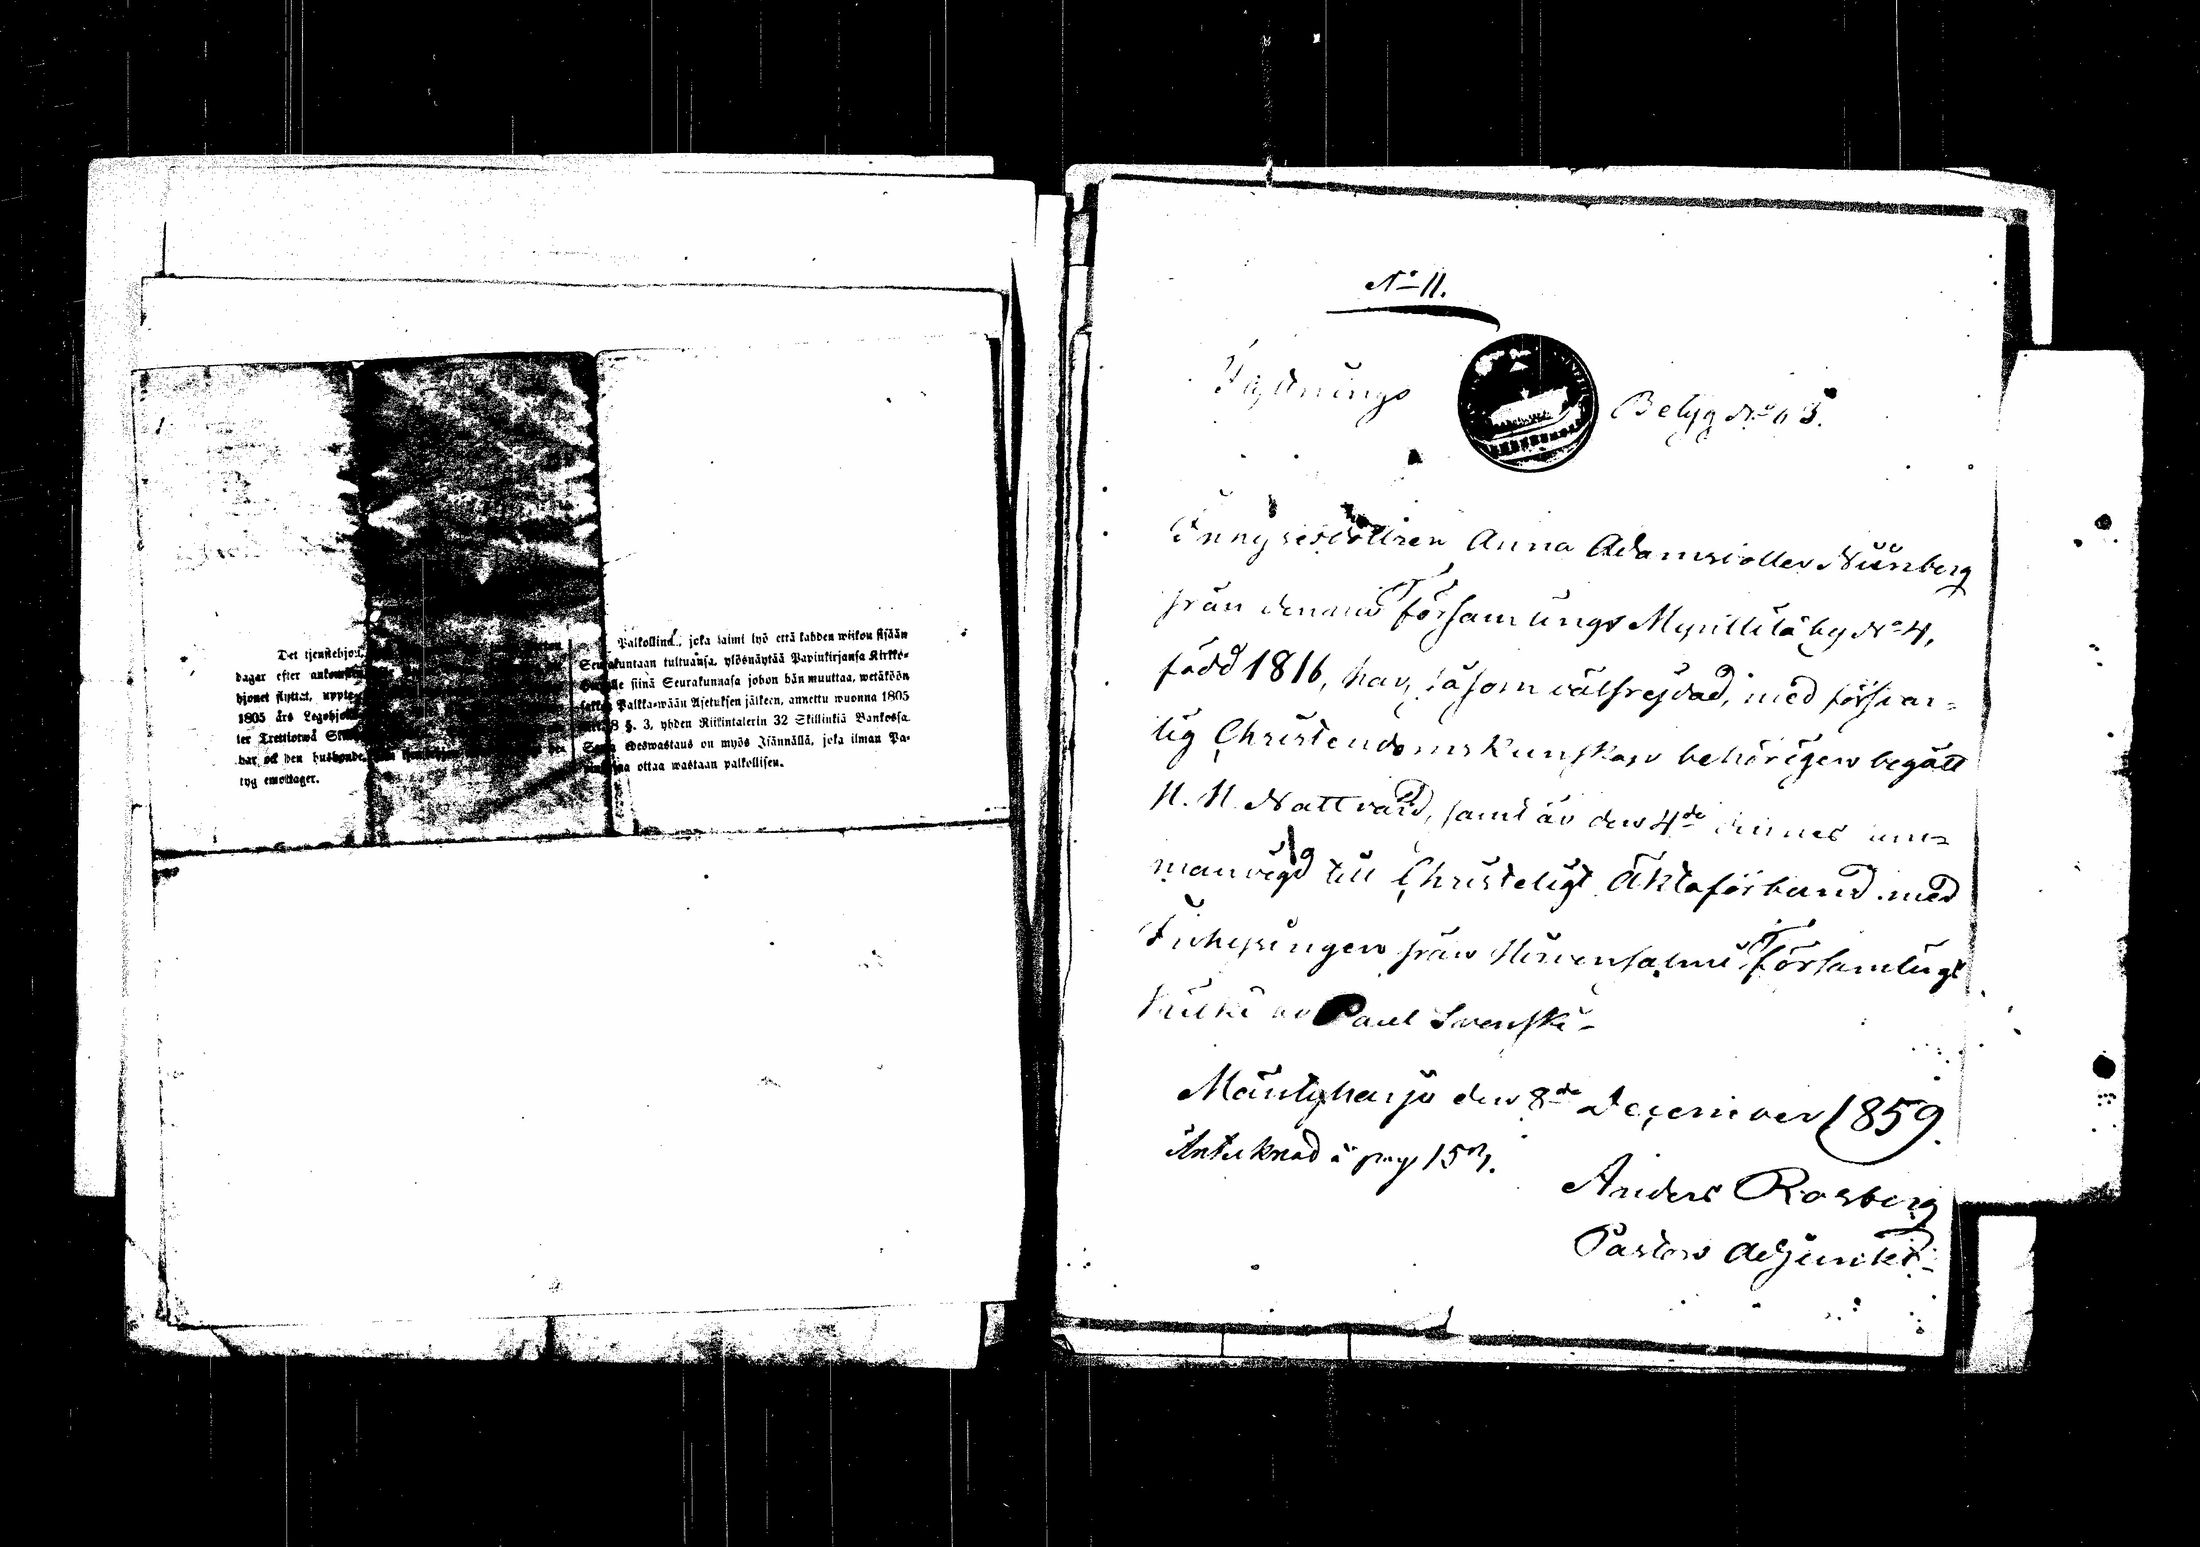 Det tjenstehjon,
dagar efter ankomsten
hjonet flyttat, uppte
1805 års Legohjons
ter Trettiotwå Skil
bar, och den husbonde,
tyg emottager.
Palkollinen, joka laimi lyö että kahden wiikon sisään
Seurakuntaan tultuansa, ylösnäytää Papinkirjansa Kirkko-
siinä Seurakunnasa johon hän muuttaa, wetäköön
Palkka-wään Asetuksen jälkeen, annettu wuonna 1805
8 §. 3, yhden Riikintalerin 32 Skillinkiä Bankossa.
Edeswastaus on myös Isännällä, joka ilman Pa-
ottaa wastaan palkollisen.
No 11.
Flyttnings Betyg No 63.
Anna Adamsdotter Nürnberg
från denna Församlings Myrttilä by No 4,
född 1816, har, såsom välfrejdad, med försvar-
lig Christendoms kunskap behörigen begått
H. H. Nattvard, samt är den 4de dennes sam-
manvigd till Christeligt Äktaförbund med
från Hirvensalmi Församlings
Paul Svensk.
Mäntyharju den 8de December 1859.
Antecknad å pag 153.
Anders Rosberg
Pastors Adjunkt.